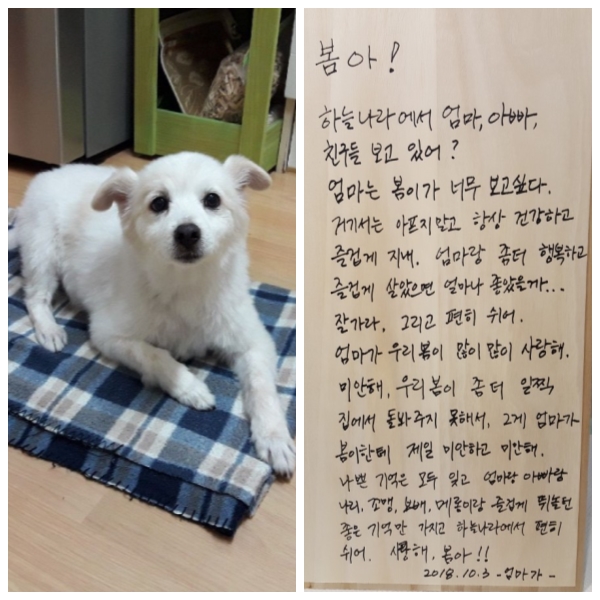 봄아!
하늘나라에서 엄마, 아빠,
친구들 보고 있어?
엄마는 봄이가 너무 보고싶다.
거기서는 아프지말고 항상 건강하고
즐겁게 지내. 엄마랑 좀더 행복하고
즐겁게 살았으면 얼마나 좋았을까...
잘가라. 그리고 편히 쉬어.
엄마가 우리봄이 많이 많이 사랑해.
미안해, 우리봄이 좀 더 일찍
집에서 돌봐주지 못해서, 그게 엄마가
봄이한테 제일 미안하고 미안해.
나쁜 기억은 모두 잊고 엄마랑 아빠랑
나리, 조맹, 보배, 메론이랑 즐겁게 뛰놀던
좋은 기억만 가지고 하늘나라에서 편히
쉬어. 사랑해, 봄아!!
2018.10.3 -엄마가-